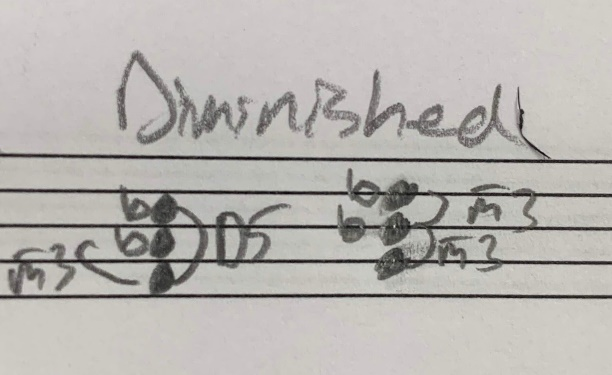 Diminished
b b m3 D5
b b m3 m3